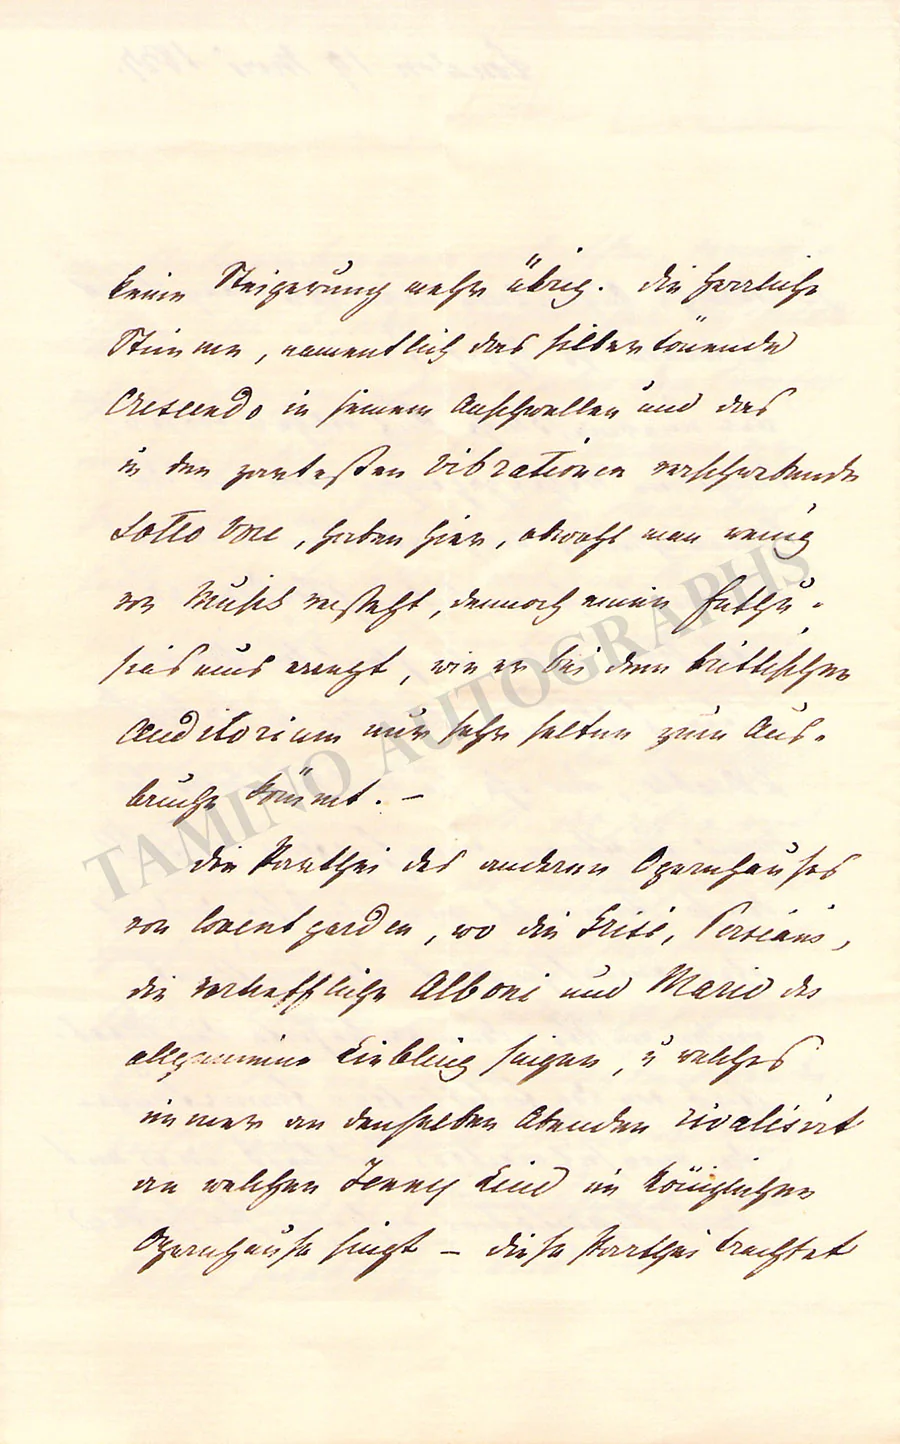 keine Steigerung mehr übrig. die herrliche
Stimme, namentlich das silbertönende
Crescendo in seinem Anschwellen und das
in den zartesten Vibrationen verschwebende
Sotto Voce, haben hier, obwohl man wenig
von Musik versteht, dennoch einen Enthu-
siasmus erregt, wie er bei dem brittischen
Auditorium nur sehr selten zum Aus-
bruche kömmt. —
TAMINO AUTOGRAPHS
die Parthei des anderen Opernhauses
von Covent garden, wo die Grisi, Persiani,
die vortreffliche Alboni und Mario der
allgemeine Liebling singen, u welches
immer an denselben Abenden rivalisirt
an welchen Jenny Lind im Königlichen
Opernhause singt — diese Parthei trachtet